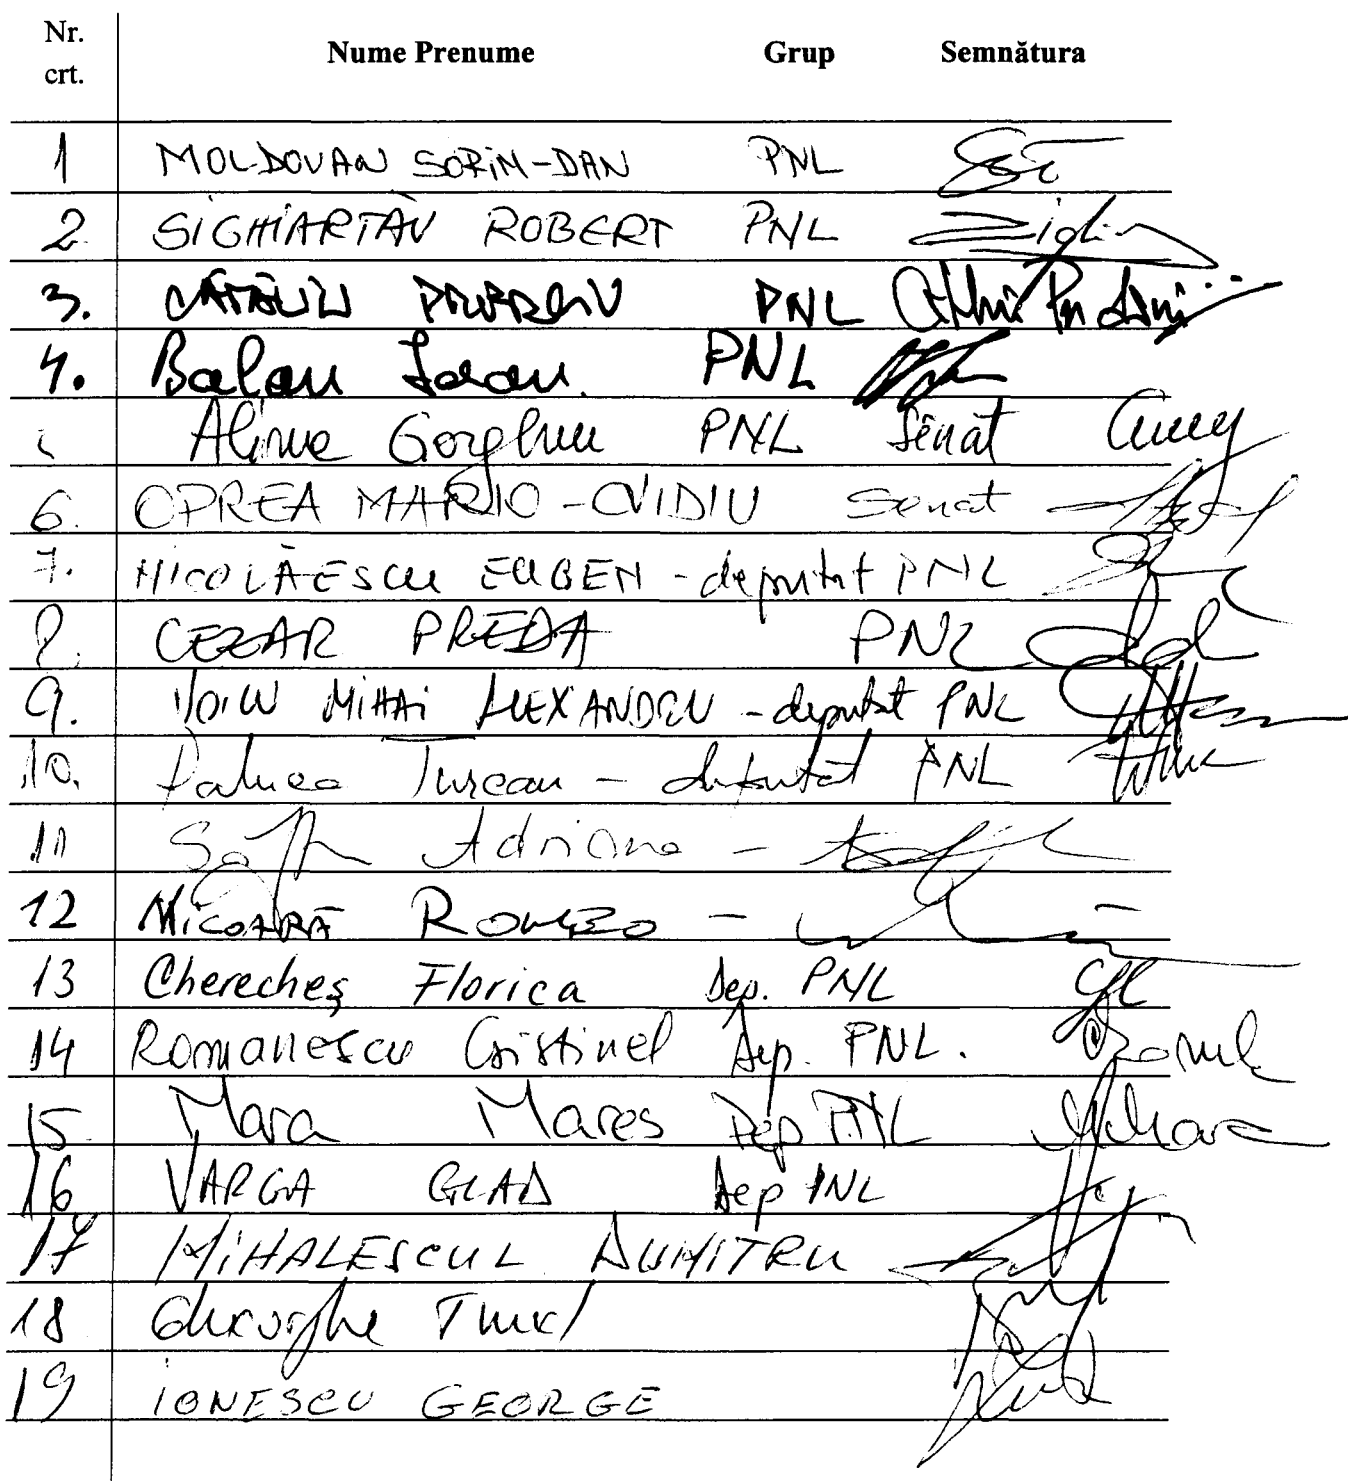 Nr. crt. Nume Prenume Grup Semnătura
1 MOLDOVAN SORIN-DAN PNL
2. SIGHIARTĂU ROBERT PNL
3. CĂTĂLIN PREDOIU PNL
4. Balan Ioan. PNL
Alina Gorghiu PNL Senat
6. OPREA MARIO-OVIDIU Senat
7. NICOLĂESCU EUGEN - deputat PNL
8. CEZAR PREDA PNL
9. VOICU MIHAI ALEXANDRU - deputat PNL
10. Raluca Turcan - deputat PNL
11 Adriana -
12 NICOARĂ ROMEO -
13 Cherecheș Florica Dep. PNL
14 Romanescu Cristinel Dep. PNL.
15 Mara Mares Dep PNL
16 VARGA GLAD Dep PNL
17 MIHALESCUL DUMITRU
18 Gheorghe Tinel
19 IONESCU GEORGE